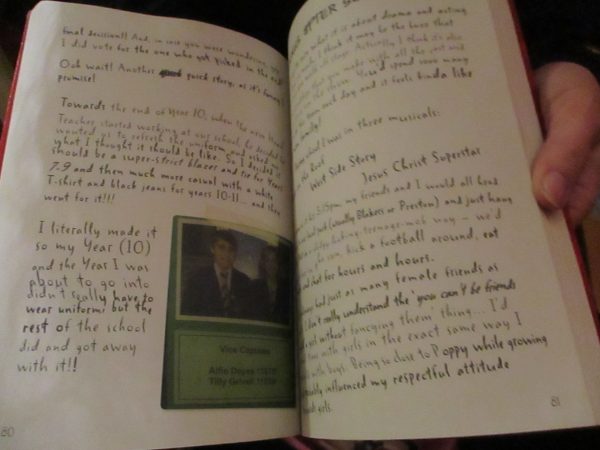 final decision!! And, in case you were wondering, yes
I did vote for the one who got picked in the end
Ooh wait! Another quick story, as it's funny I
promise!
Towards the end of Year 10, when the new Head
Teacher started working at our school, he decided he
wanted us to refresh the uniform and asked
what I thought it should be like. So I decided it
should be a super-strict blazer and tie for Years
7-9 and then much more casual with a white
T-shirt and black jeans for years 10-11... and they
went for it!!!
I literally made it
so my Year (10)
and the Year I was
about to go into
didn't really have to
wear uniform, but the
rest of the school
did and got away
with it!!
Vice Captains
Alfie Deyes
Tilly
80
AFTER
what it is about drama and acting
I think it may be the buzz that
on stage. Actually, I think it's also
that you make with all the cast and
the show. You'd spend so many
each day and it feels kinda like
family!
I was in three musicals:
the Roof
West Side Story
Jesus Christ Superstar
3:15pm, my friends and I would all head
park (usually Blakers or Preston) and just hang
teenage-mob way – we'd
kick a football around, eat
and chat for hours and hours.
had just as many female friends as
I don't really understand the 'you can't be friends
a girl without fancying them' thing... I'd
time with girls in the exact same way I
with boys. Being so close to Poppy while growing
influenced my respectful attitude
girls.
81